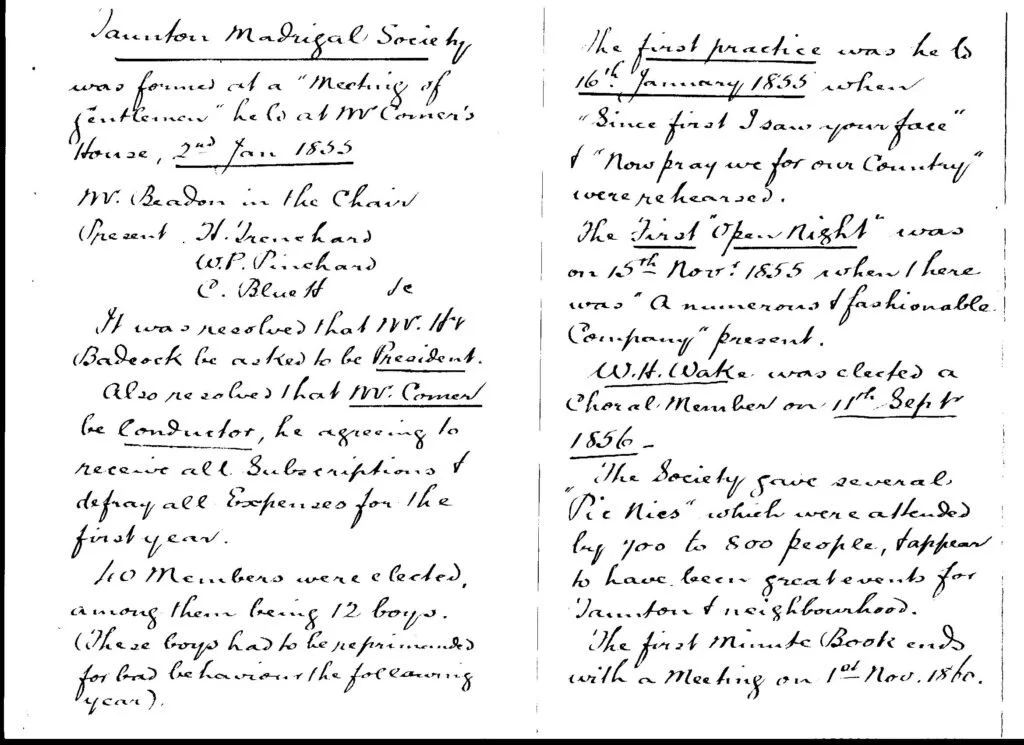 Taunton Madrigal Society
was formed at a "Meeting of
Gentlemen" held at Mr Comer's
House, 2nd Jan 1855
Mr. Beadon in the Chair
Present H. Trenchard
W.P. Pinchard
C. Bluett &c
It was resolved that Mr. Hy
Badcock be asked to be President.
Also resolved that Mr. Comer
be Conductor, he agreeing to
receive all Subscriptions &
defray all Expenses for the
first year.
40 Members were elected,
among them being 12 boys.
(These boys had to be reprimanded
for bad behaviour the following
year).
The first practice was held
16th January 1855 when
"Since first I saw your face"
& "Now pray we for our Country"
were rehearsed.
The First "Open Night" was
on 15th Novr 1855 when there
was "A numerous & fashionable
Company" present.
W.H. Wake was elected a
Choral Member on 11th Sept
1856 -
The Society gave several
"Pic Nics" which were attended
by 700 to 800 people, & appear
to have been great events for
Taunton & neighbourhood.
The first Minute Book ends
with a Meeting on 1st Nov. 1860.